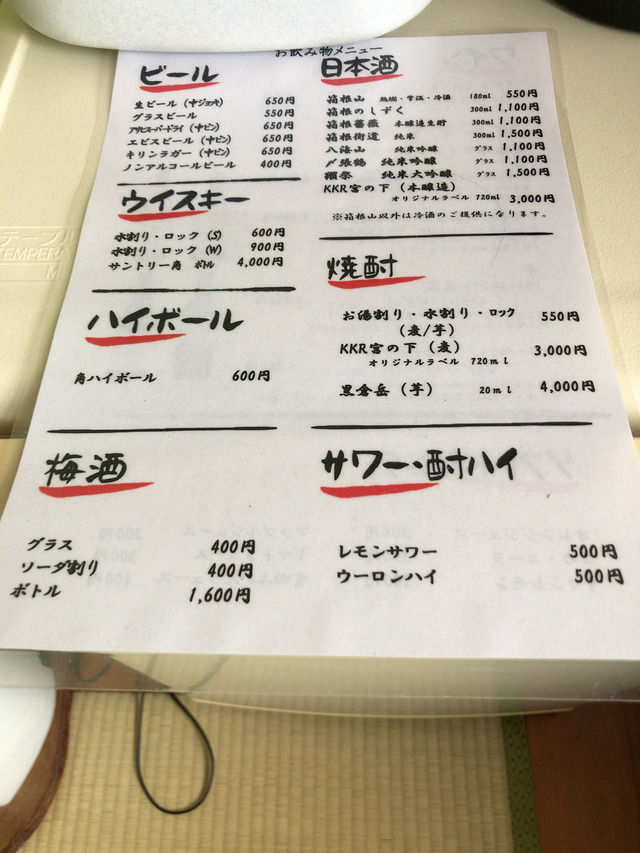 お飲み物メニュー
ビール
生ビール (中ジョッキ) 650円
グラスビール 550円
アサヒスーパードライ (中ビン) 650円
エビスビール (中ビン) 650円
キリンラガー (中ビン) 650円
ノンアルコールビール 400円
ウイスキー
水割り・ロック (S) 600円
水割り・ロック (W) 900円
サントリー角 ボトル 4,000円
ハイボール
角ハイボール 600円
梅酒
グラス 400円
ソーダ割り 400円
ボトル 1,600円
日本酒
箱根山 熱燗・常温・冷酒 180ml 550円
箱根のしずく 300ml 1,100円
箱根薔薇 本醸造生貯 300ml 1,100円
箱根街道 純米 300ml 1,500円
八海山 純米吟醸 グラス 1,100円
〆張鶴 純米吟醸 グラス 1,100円
獺祭 純米大吟醸 グラス 1,500円
KKR宮の下 (本醸造)
オリジナルラベル 720ml 3,000円
※箱根山以外は冷酒のご提供になります。
焼酎
お湯割り・水割り・ロック 550円
(麦/芋)
KKR宮の下 (麦) 3,000円
オリジナルラベル 720ml
黒倉岳 (芋) 20ml 4,000円
サワー・酎ハイ
レモンサワー 500円
ウーロンハイ 500円